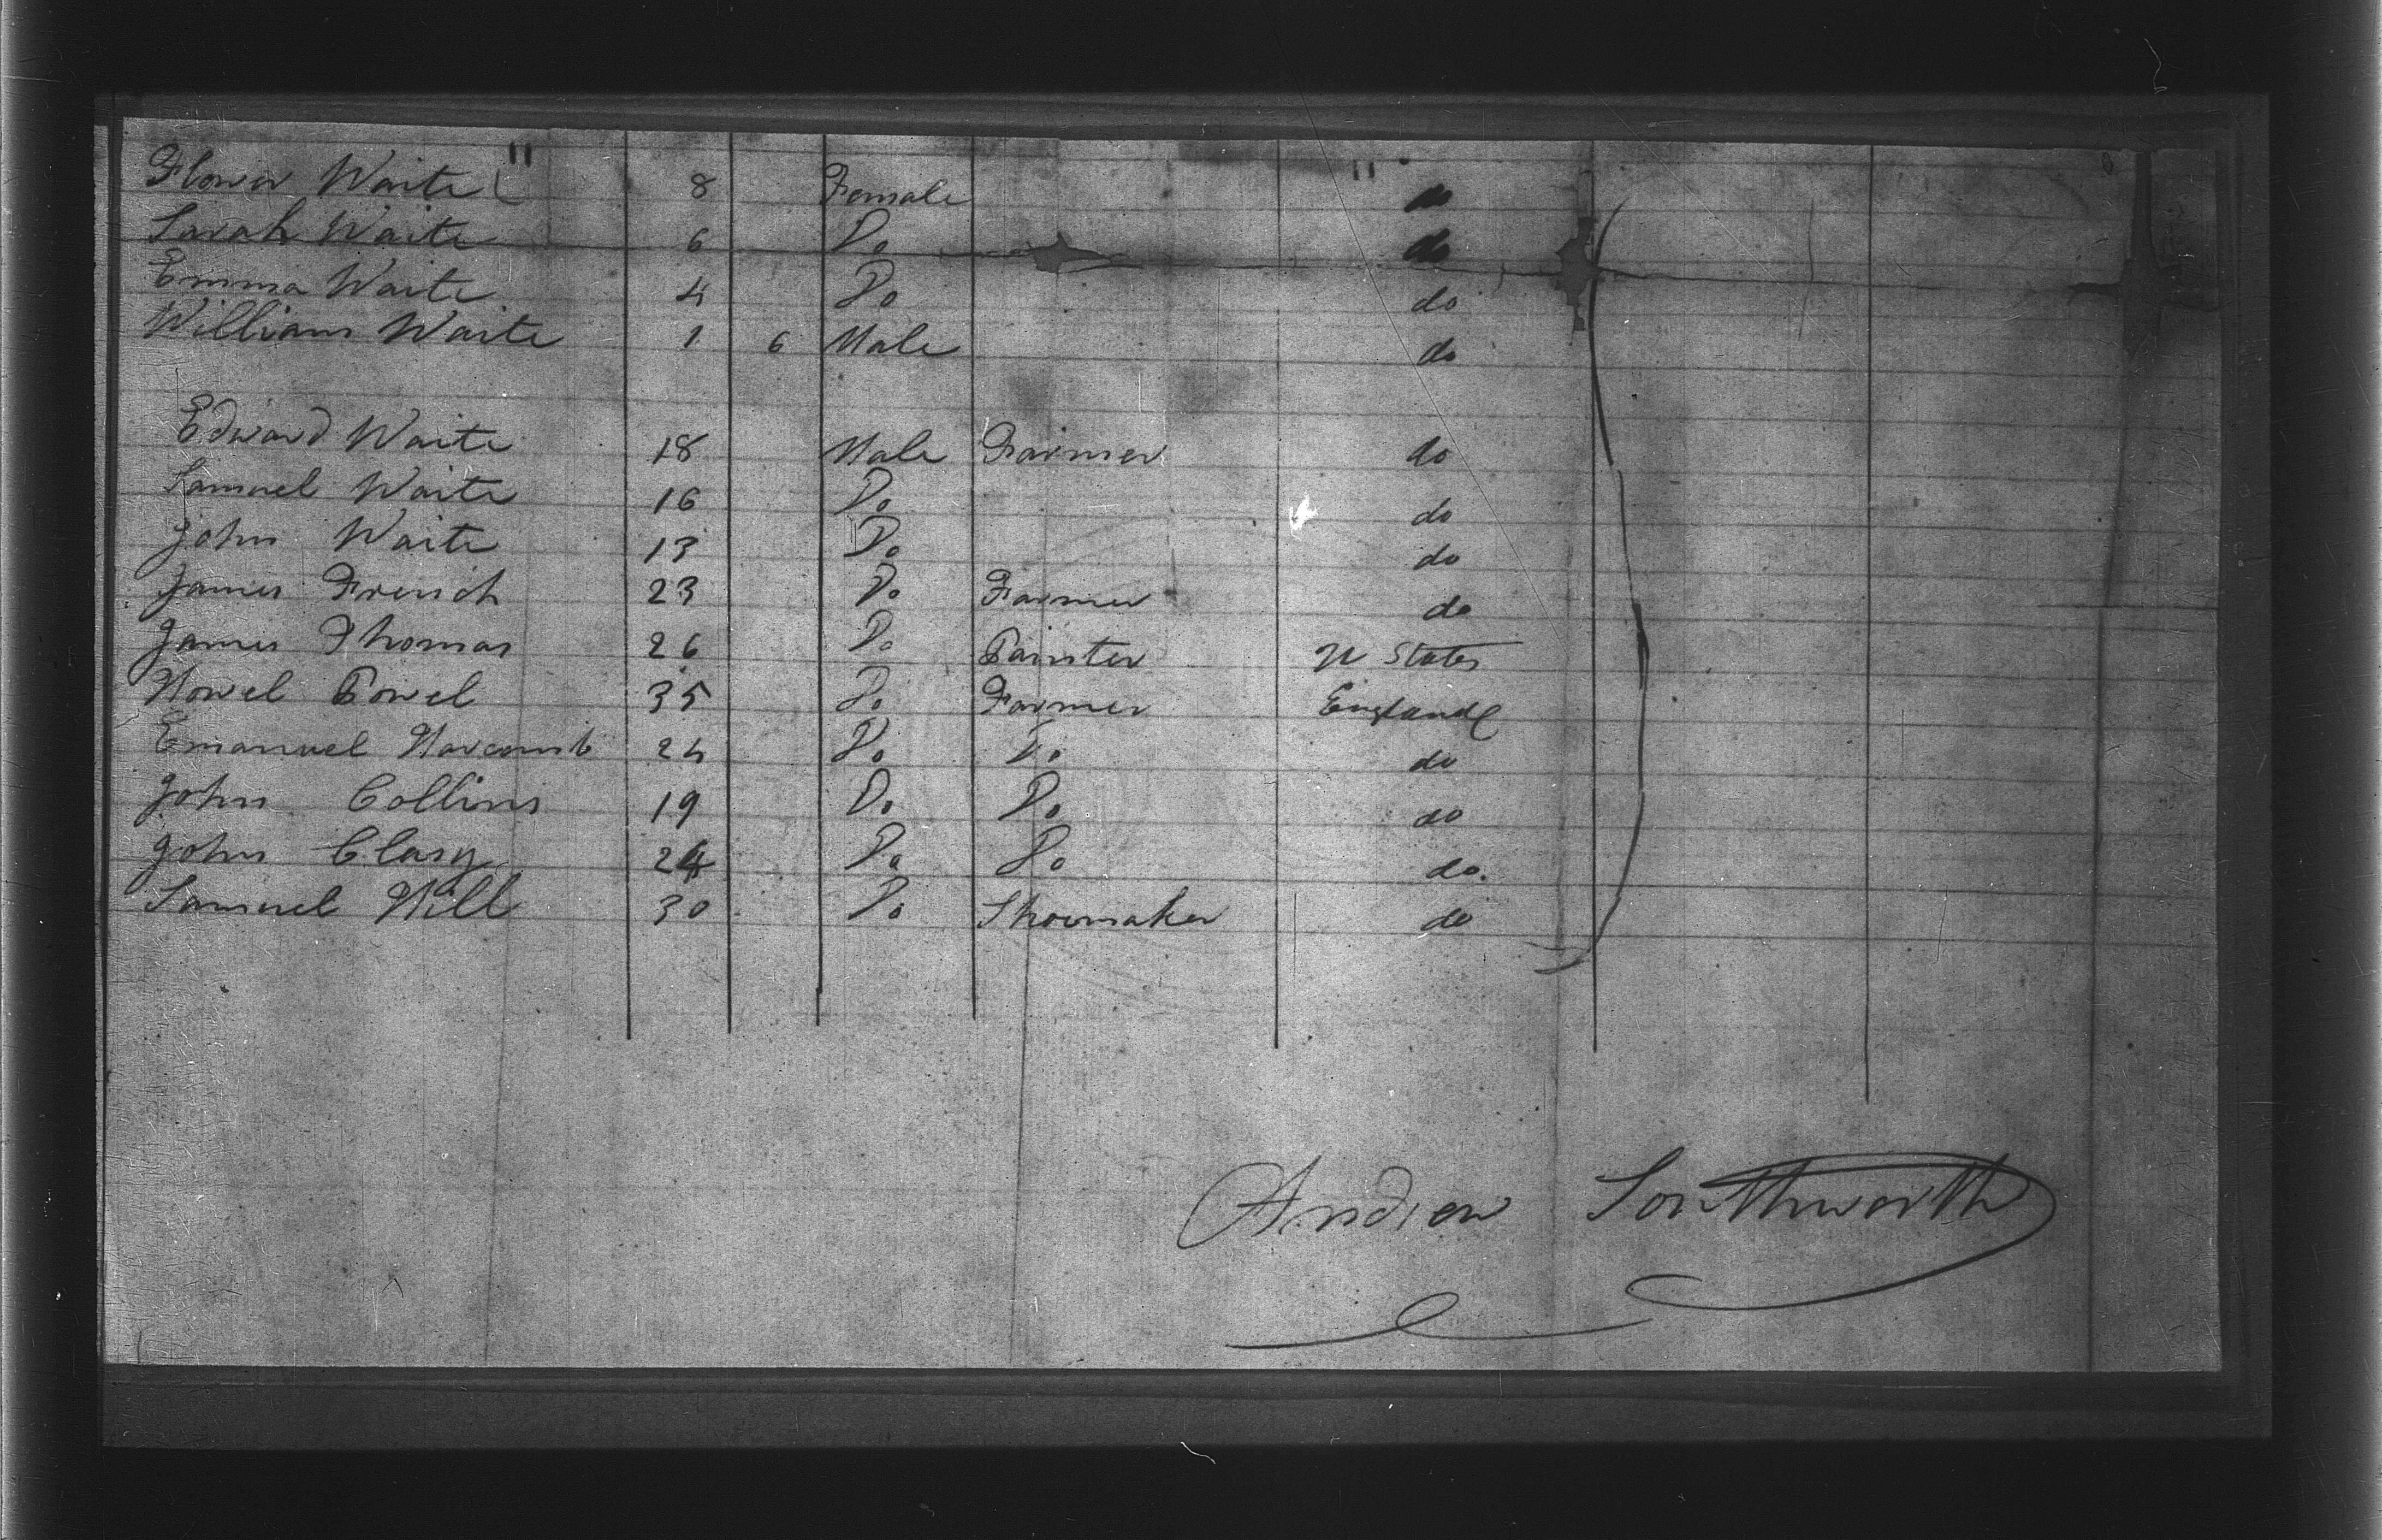 " "
Flower Waite 8 Female do
Sarah Waite 6 Do do
Emma Waite 4 Do do
William Waite 1 6 Male do
Edward Waite 18 Male Farmer do
Samuel Waite 16 Do do
John Waite 13 Do do
James French 23 Do Farmer do
James Thomas 26 Do Painter U States
Howel Powel 35 Do Farmer England
Emanuel Harcomb 24 Do Do do
John Collins 19 Do Do do
John Clasy 24 Do Do do.
Samuel Hill 30 Do Shoemaker do
Andrew Southworth